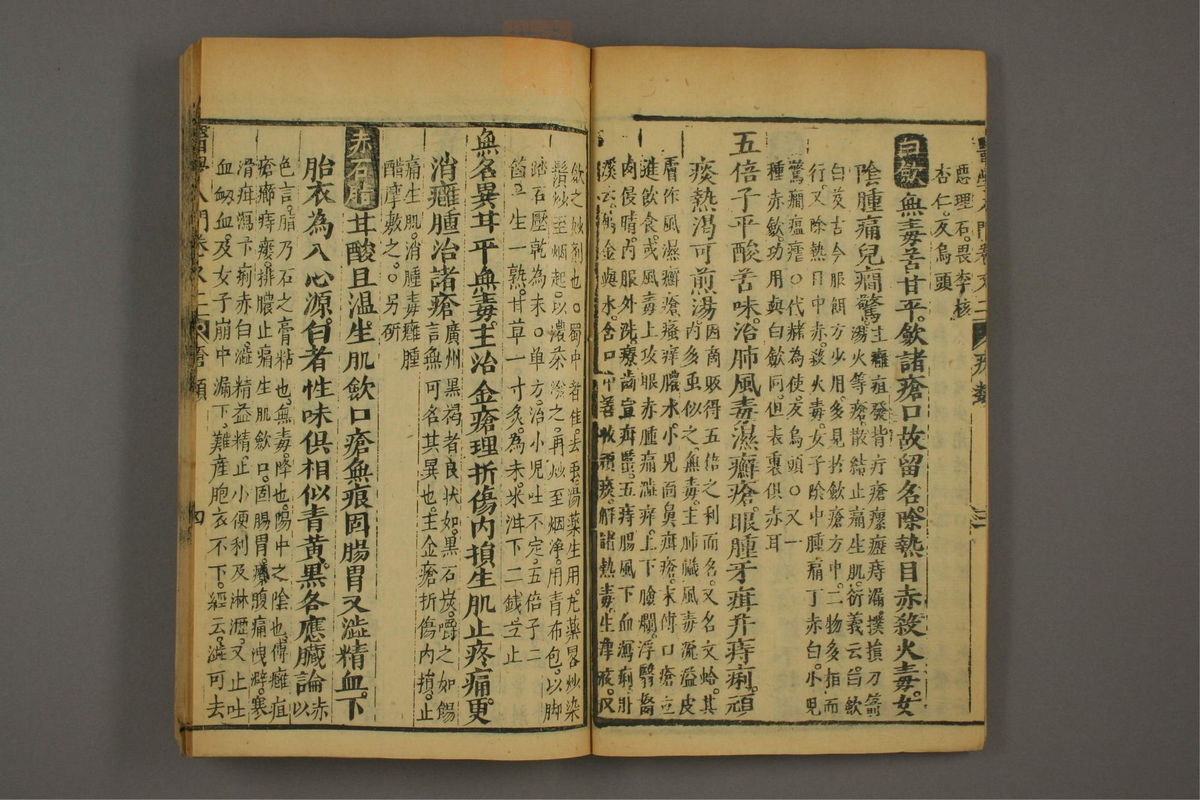 醫學入門卷之二 瘡類 三
惡理石。畏李核
杏仁。反烏頭
白歛無毒苦甘平。歛諸瘡口故留名。除熱目赤殺火毒。女
陰腫痛兒癎驚主癰疽發背疔瘡瘰癧痔漏。撲損刀箭
湯火等瘡。散結止痛生肌。衍義云。白歛
白芨古今服餌方少用。多見於歛瘡方中。二物多相而
行。又除熱目中赤。殺火毒。女子陰中腫痛。丁赤白。小兒
驚癎瘟瘧。○代赭為使。反烏頭。○又一
種赤歛。功用與白歛同。但表裏俱赤耳
五倍子平酸苦味。治肺風毒濕癬瘡。眼腫牙疳并痔痢。頑
痰熱渴可煎湯因商販得五倍之利而名。又名文蛤。其
內多虫似之無毒。主肺臟風毒流溢皮
膚作風濕癬瘡。瘙痒膿水。小兒面鼻疳瘡。末傅口瘡立
進飲食。或風毒上攻眼赤腫痛澁痒。上下臉爛。浮翳瘀
肉侵睛。內服外洗。療齒宣疳䘌。五痔腸風下血瀉痢。肚
溪云。屬金與水。含口中善收頑痰。解諸熱毒。生津液。以
歛之妙劑也。○蜀中者佳。去虫。湯藥生用。丸藥畧炒。染
鬚炒至烟起。以濃茶潑之。再炒至烟淨。用青布包。以脚
踏石壓乾為末。○單方。治小兒吐不定。五倍子二
箇一生一熟。甘草一寸炙。為末。米泔下二錢立止
無名異甘平無毒。主治金瘡理折傷內損。生肌止疼痛。更
消癰腫治諸瘡言無可名其異也。主金瘡折傷內損。止
廣州黑褐者良。狀如黑石炭。嚼之如餳
痛生肌。消腫毒癰腫
醋摩敷之。○另研
赤石脂甘酸且溫。生肌歛口瘡無痕。固腸胃又澁精血。下
胎衣為入心源。白者性味俱相似。青黃黑各應臟論赤以
色言。脂乃石之膏粘也。無毒。降也。陽中之陰也。傅癰疽
瘡癤痔瘻。排膿止痛生肌歛口。固腸胃療腹痛洩澼。寒
滑疳瀉下痢赤白。澁精益精止小便利及淋瀝。又止吐
血衂血。及女子崩中漏下。難產胞衣不下。經云。澁可去
醫學入門卷之二 瘡類 四